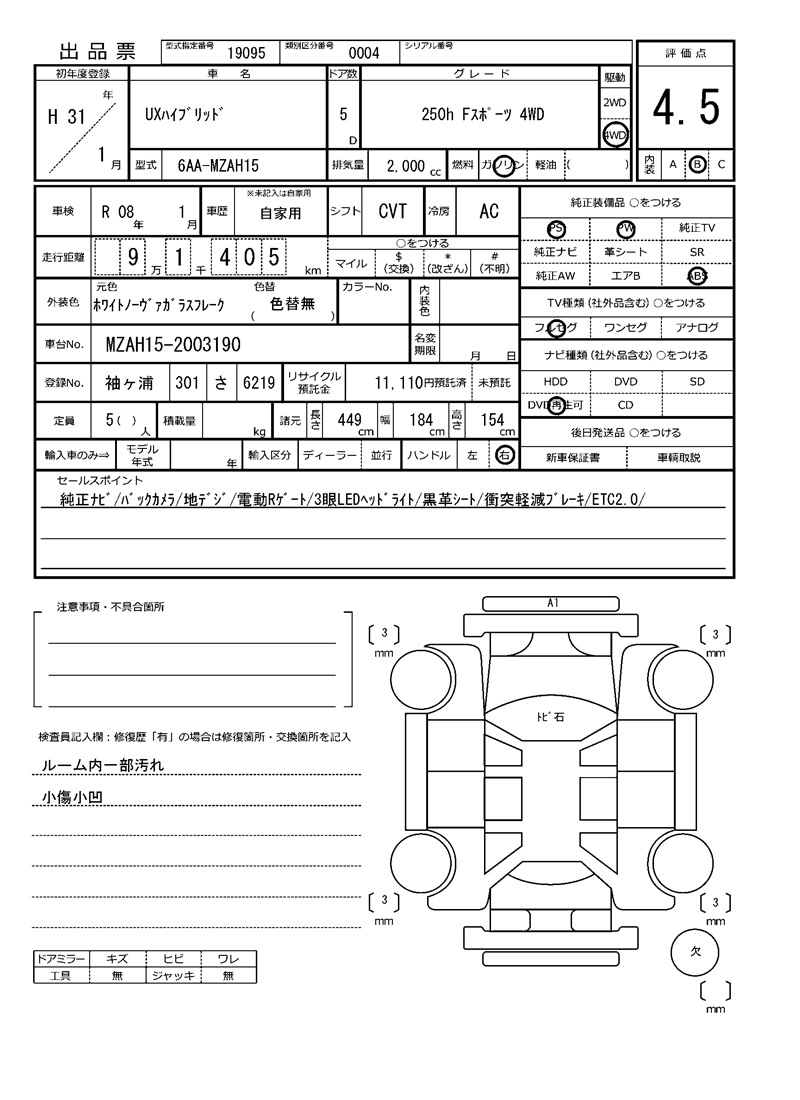 出品票 型式指定番号 19095 類別区分番号 0004 シリアル番号
評価点
4.5
内装 A B C
初年度登録 車名 ドア数 グレード 駆動
H 31 年 1 月 UXﾊｲﾌﾞﾘｯﾄﾞ 5 D 250h Fスポーツ 4WD 2WD 4WD
型式 6AA-MZAH15 排気量 2.000 cc 燃料 ガソリン 軽油 ( )
車検 R 08 年 1 月 車歴 ※未記入は自家用 自家用 シフト CVT 冷房 AC
走行距離 9 万 1 千 4 0 5 km ○をつける マイル $ (交換) * (改ざん) # (不明)
外装色 元色 ﾎﾜｲﾄﾉｰｳﾞｧｶﾞﾗｽﾌﾚｰｸ 色替 ( 色替無 ) カラーNo. 内装色
車台No. MZAH15-2003190 名変期限 月 日
登録No. 袖ヶ浦 301 さ 6219 リサイクル預託金 11,110円預託済 未預託
定員 5 ( ) 人 積載量 kg 諸元 長さ 449 cm 幅 184 cm 高さ 154 cm
輸入車のみ⇒ モデル年式 年 輸入区分 ディーラー 並行 ハンドル 左 右
純正装備品 ○をつける
PS PW 純正TV
純正ナビ 革シート SR
純正AW エアB ABS
TV種類 (社外品含む) ○をつける
フルセグ ワンセグ アナログ
ナビ種類 (社外品含む) ○をつける
HDD DVD SD
DVD再生可 CD
後日発送品 ○をつける
新車保証書 車輌取説
セールスポイント
純正ﾅﾋﾞ/ﾊﾞｯｸｶﾒﾗ/地ﾃﾞｼﾞ/電動Rｹﾞｰﾄ/3眼LEDﾍｯﾄﾞﾗｲﾄ/黒革ｼｰﾄ/衝突軽減ﾌﾞﾚｰｷ/ETC2.0/
注意事項・不具合箇所
検査員記入欄：修復歴「有」の場合は修復箇所・交換箇所を記入
ルーム内一部汚れ
小傷小凹
ドアミラー キズ ヒビ ワレ
工具 無 ジャッキ 無
A1
3 mm
3 mm
ﾄﾋﾞ石
3 mm
3 mm
欠
mm